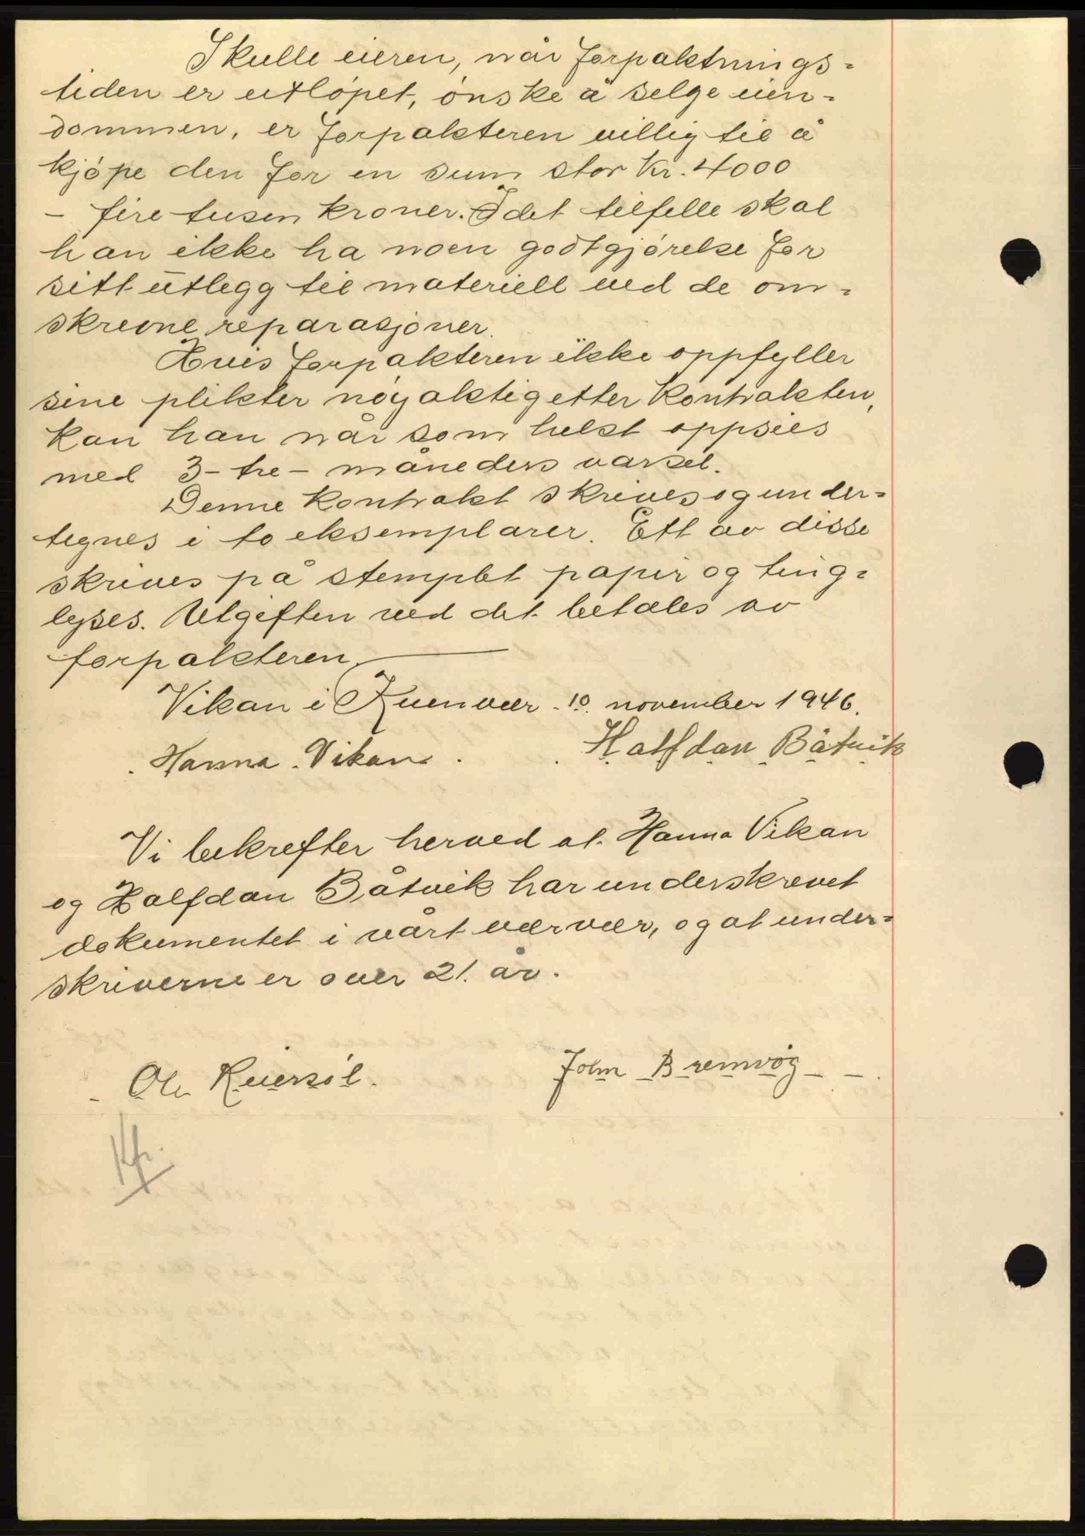 Skulle eieren, når forpaktnings=
tiden er utløpet, ønske å selge eien=
dommen, er forpakteren villig til å
kjøpe den for en sum stor Kr. 4000
– fire tusen kroner. I det tilfelle skal
han ikke ha noen godtgjørelse for
sitt utlegg til materiell ved de om=
skrevne reparasjoner.
Hvis forpakteren ikke oppfyller
sine plikter nøyaktig etter kontrakten,
kan han når som helst oppsies
med 3 – tre – måneders varsel.
Denne kontrakt skrives og under=
tegnes i to eksemplarer. Ett av disse
skrives på stemplet papir og ting=
lyses. Utgiften ved det betales av
forpakteren.
Vikan i Kvenvær 10. november 1946.
Hanna Vikan. Halfdan Båtvik
Vi bekrefter herved at Hanna Vikan
og Halfdan Båtvik har underskrevet
dokumentet i vårt nærvær, og at under=
skriverne er over 21 år.
John Bremvåg